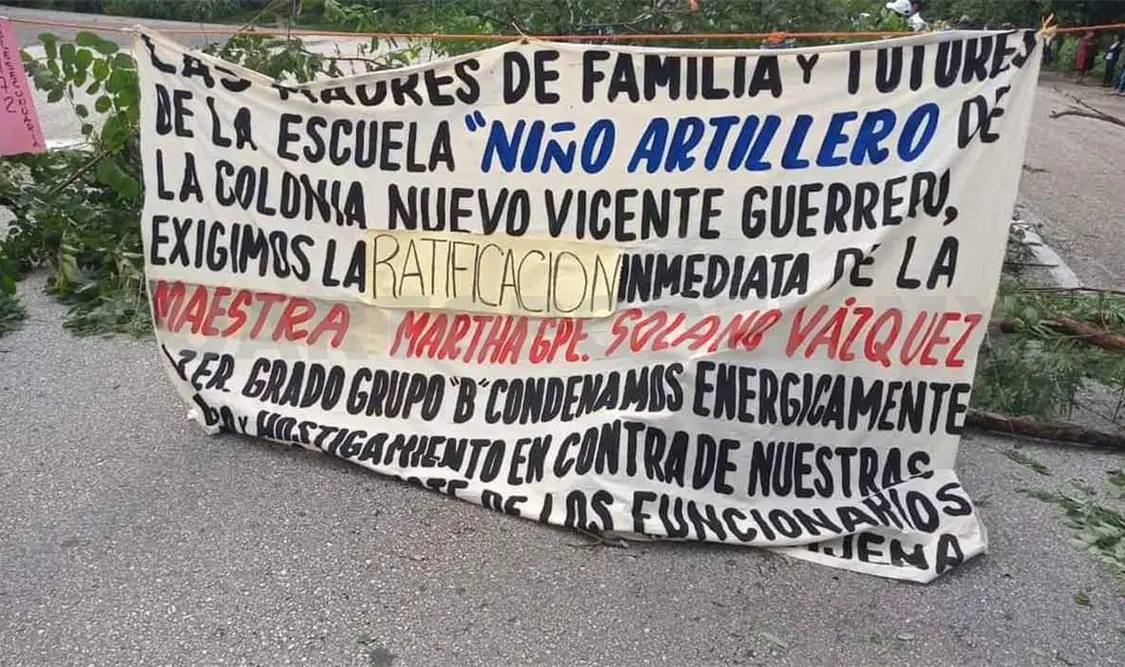 LAS MADRES DE FAMILIA Y TUTORES
DE LA ESCUELA "NIÑO ARTILLERO DE
LA COLONIA NUEVO VICENTE GUERRERO,
EXIGIMOS LA RATIFICACION INMEDIATA DE LA
MAESTRA MARTHA GPE. SOLANO VÁZQUEZ
1ER GRADO GRUPO "B" CONDENAMOS ENERGICAMENTE
Y HOSTIGAMIENTO EN CONTRA DE NUESTRAS
DE LOS FUNCIONARIOS